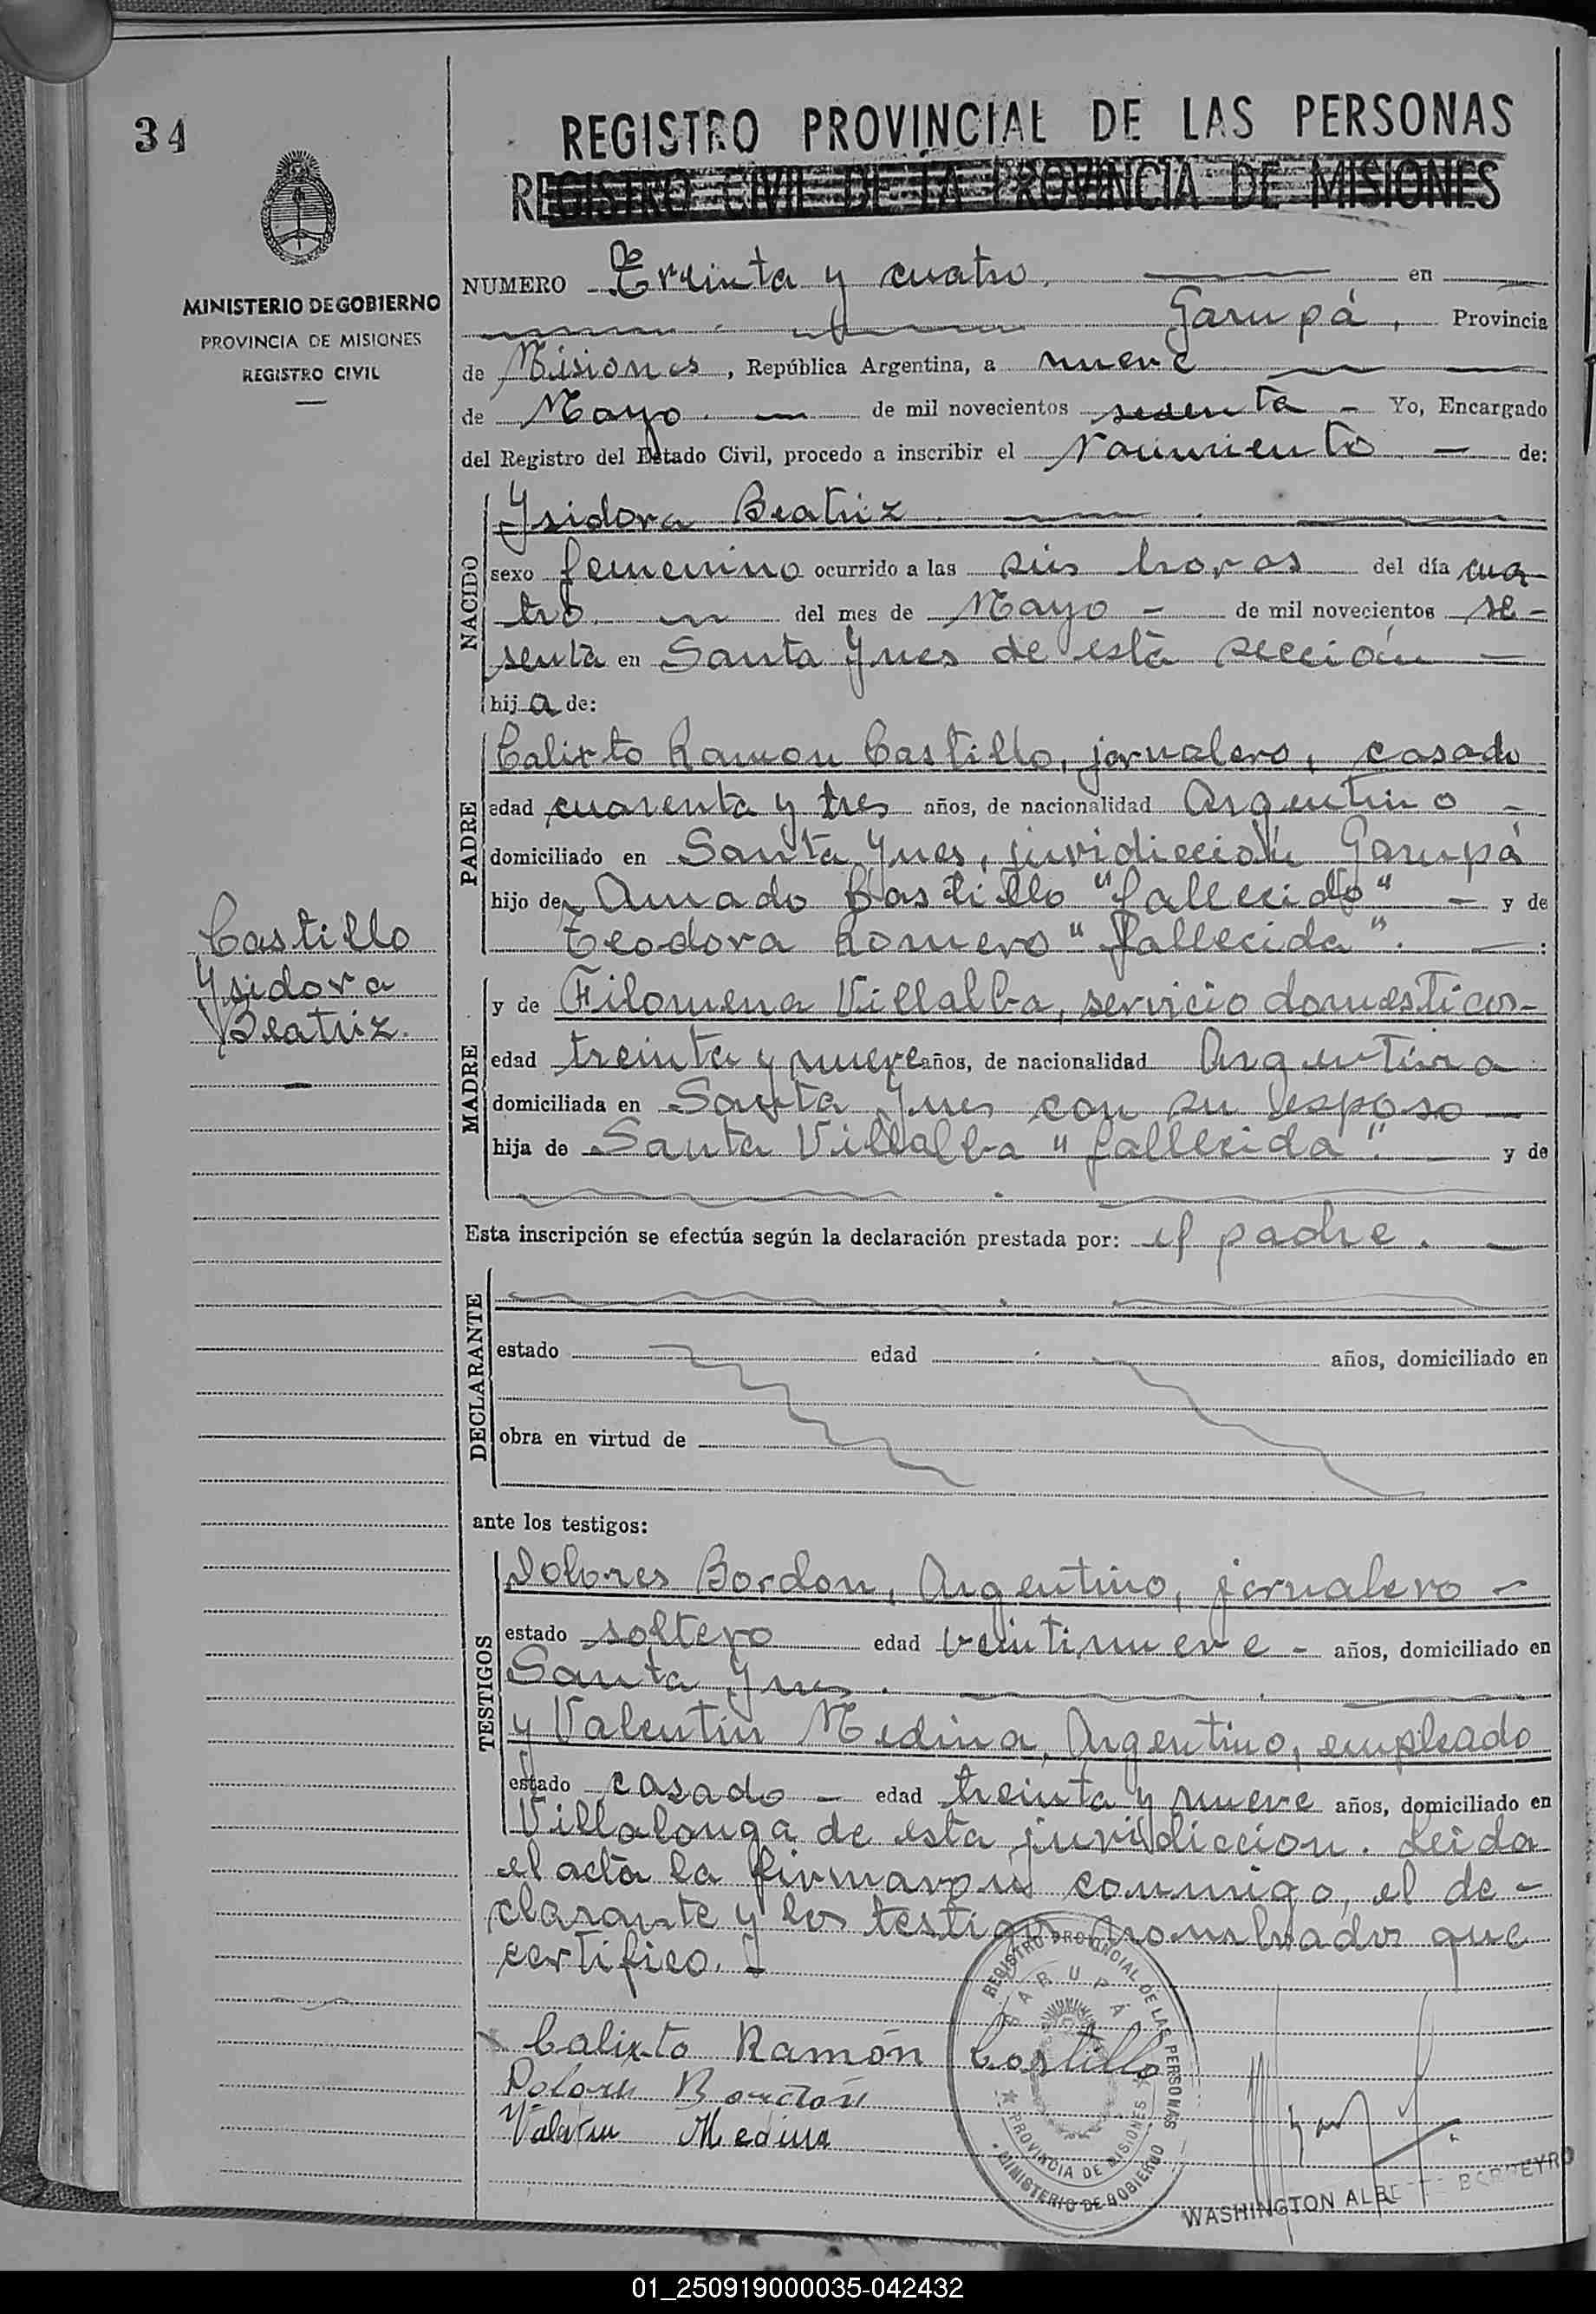 34
REGISTRO PROVINCIAL DE LAS PERSONAS
REGISTRO CIVIL DE LA PROVINCIA DE MISIONES
MINISTERIO DE GOBIERNO
PROVINCIA DE MISIONES
REGISTRO CIVIL
NUMERO Treinta y cuatro. en
Garupá, Provincia
de Misiones, República Argentina, a nueve
de Mayo. de mil novecientos sesenta - Yo, Encargado
del Registro del Estado Civil, procedo a inscribir el Nacimiento - de:
NACIDO
Ysidora Beatriz
sexo femenino ocurrido a las seis horas del día cua-
tro. del mes de Mayo - de mil novecientos se-
senta en Santa Ynes de esta sección -
hija de:
PADRE
Calixto Ramon Castillo, jornalero, casado
edad cuarenta y tres años, de nacionalidad Argentino -
domiciliado en Santa Ynes, juridiccion Garupá
hijo de Amado Castillo "fallecido" - y de
Teodora Romero "fallecida". - :
Castillo
Ysidora
Beatriz.
MADRE
y de Filomena Villalba, servicio domesticos-
edad treinta y nueve años, de nacionalidad Argentina
domiciliada en Santa Ynes con su esposo -
hija de Santa Villalba "fallecida". y de
Esta inscripción se efectúa según la declaración prestada por: el padre. -
DECLARANTE
estado edad años, domiciliado en
obra en virtud de
ante los testigos:
TESTIGOS
Dolores Bordon, Argentino, jornalero -
estado soltero edad veintinueve - años, domiciliado en
Santa Ynes.
y Valentin Medina, Argentino, empleado
estado casado - edad treinta y nueve años, domiciliado en
Villalonga de esta juridiccion. Leida
el acta la firmaron conmigo, el de-
clarante y los testigos nombrados que
certifico. -
Calixto Ramón Castillo
Dolores Bordón
Valentin Medina
REGISTRO PROVINCIAL DE LAS PERSONAS
GARUPÁ
PROVINCIA DE MISIONES
MINISTERIO DE GOBIERNO
WASHINGTON ALBERTO BARREYRO
01_250919000035-042432